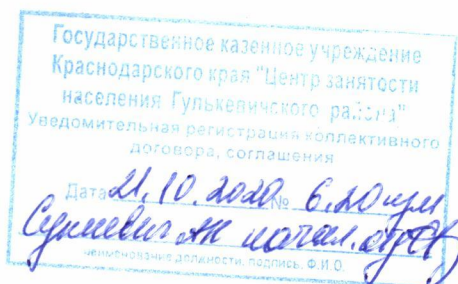 Государственное казенное учреждение
Краснодарского края "Центр занятости
населения Гулькевичского района"
Уведомительная регистрация коллективного
договора, соглашения
Дата 21.10.2020 №
наименования должности, подпись, Ф.И.О.